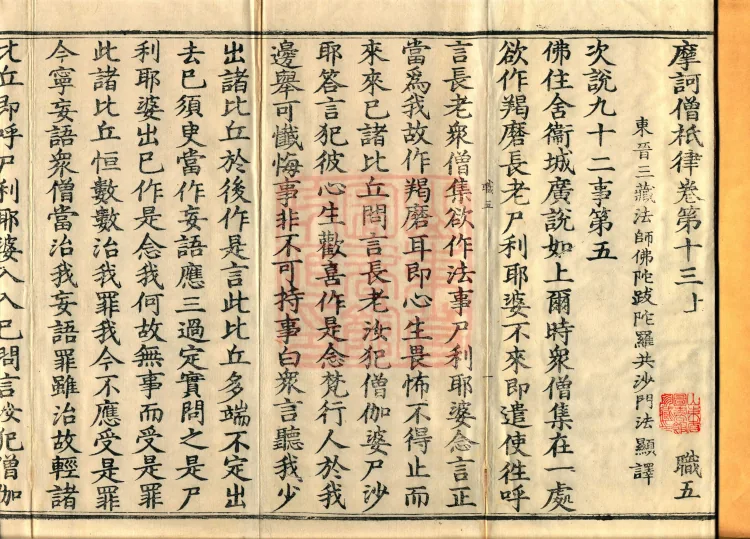 摩訶僧祇律卷第十三上 職五
東晉三藏法師佛陀跋陀羅共沙門法顯譯
次說九十二事第五
佛住舍衞城廣說如上爾時衆僧集在一處
欲作羯磨長老尸利耶婆不來即遣使徃呼
職五
言長老衆僧集欲作法事尸利耶婆念言正
當爲我故作羯磨耳即心生畏怖不得止而
來來已諸比丘問言長老汝犯僧伽婆尸沙
耶答言犯彼心生歡喜作是念梵行人於我
邊舉可懺悔事非不可持事白衆言聽我少
出諸比丘於後作是言此比丘多端不定出
去已須臾當作妄語應三過定實問之是尸
利耶婆出已作是念我何故無事而受是罪
此諸比丘恒數數治我罪我今不應受是罪
今寧妄語衆僧當治我妄語罪雖治故輕諸
比丘即呼尸利耶婆入入已問言汝犯僧伽